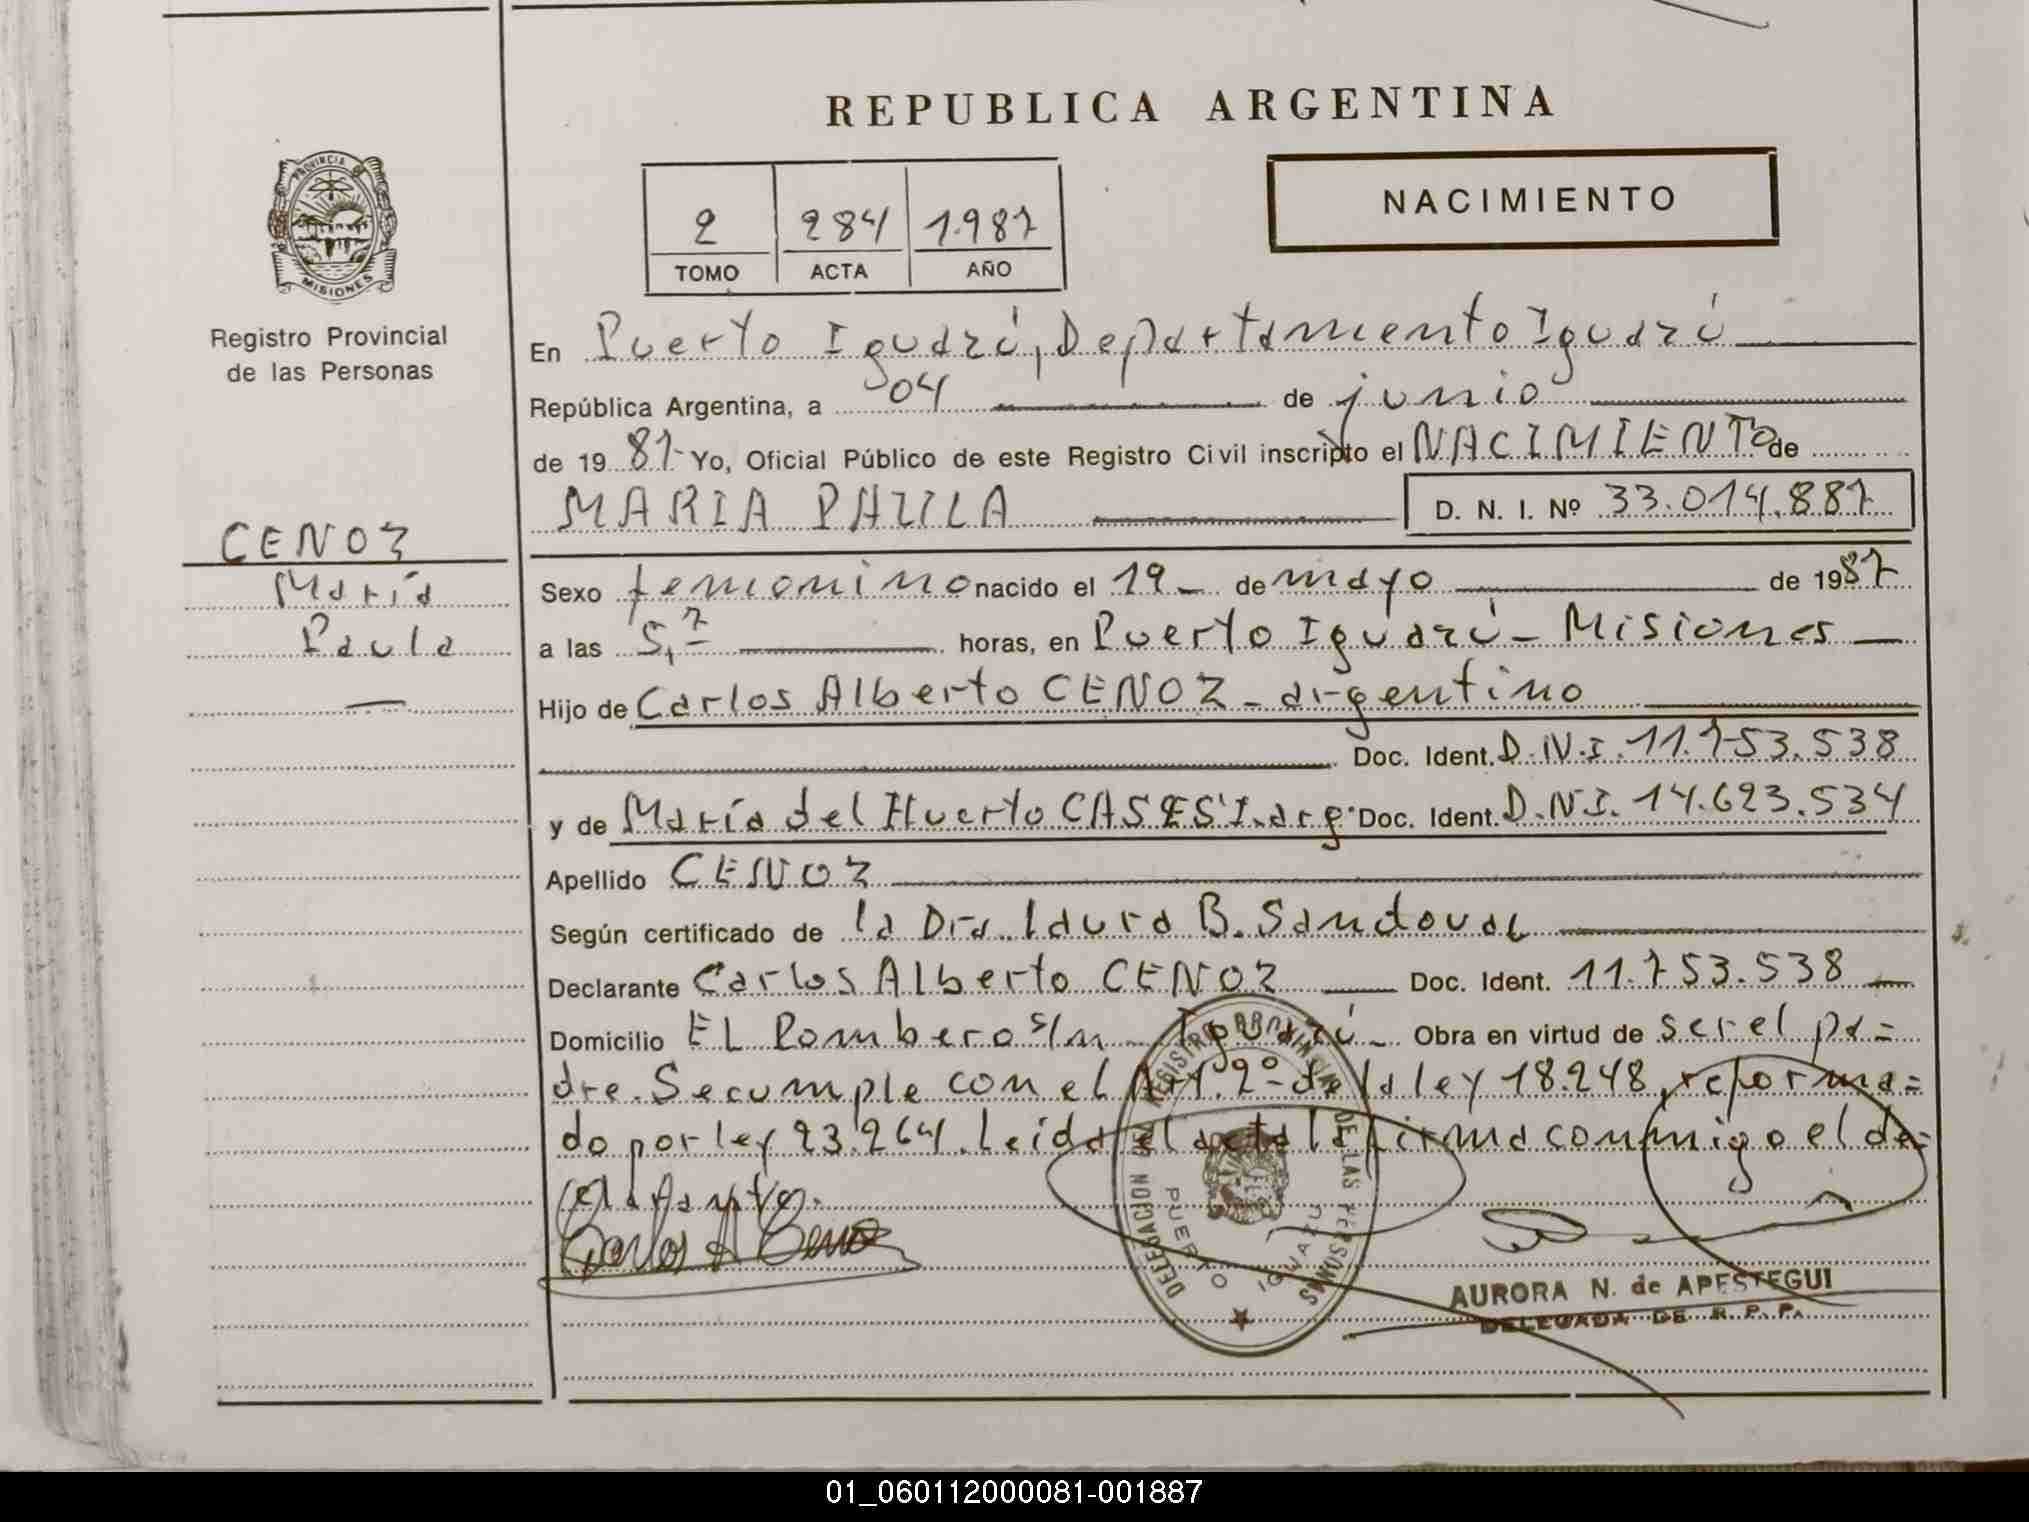 REPUBLICA ARGENTINA
PROVINCIA
MISIONES
Registro Provincial
de las Personas
2 284 1.987
TOMO ACTA AÑO
NACIMIENTO
En Puerto Iguazú, Departamento Iguazú
República Argentina, a 04 de junio
de 1987- Yo, Oficial Público de este Registro Civil inscripto el NACIMIENTO de
MARIA PAULA D. N. I. Nº 33.014.887
CENOZ
María
Paula
Sexo femenino nacido el 19- de mayo de 1987
a las 5,7 horas, en Puerto Iguazú - Misiones
Hijo de Carlos Alberto CENOZ - argentino
Doc. Ident. D.N.I. 11.753.538
y de María del Huerto CASESI. arg. Doc. Ident. D.N.I. 14.623.534
Apellido CENOZ
Según certificado de la Dra. Laura B. Sandoval
Declarante Carlos Alberto CENOZ Doc. Ident. 11.753.538
Domicilio EL Pombero s/n - Iguazú - Obra en virtud de ser el pa=
dre. Se cumple con el Art. 2º - de la ley 18.248, reforma=
do por ley 23.264. Leida el acta la firma conmigo el de=
clarante.
Carlos A Cenoz
REGISTRO PROVINCIAL DE LAS PERSONAS
DELEGACION
PUERTO IGUAZU
AURORA N. de APESTEGUI
DELEGADA DE R. P. P.
01_060112000081-001887